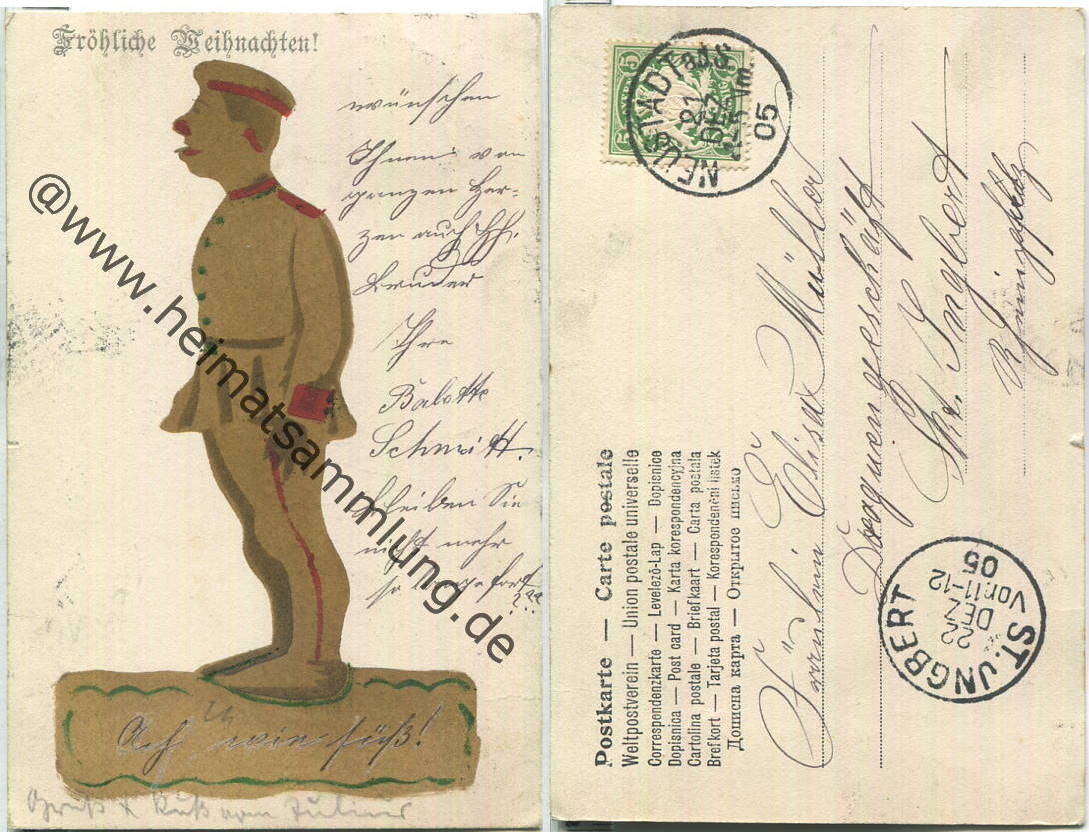 Fröhliche Weihnachten!
wünschen
Ihnen von
ganzen Her-
zen auch Hh.
Bruder
Ihre
Babette
Schmitt.
bleiben Sie
nicht mehr
so lange fort
Ach wie süß!
Gruß & Kuß vom
@www.heimatsammlung.de
5
5
NEUSTADT a.d.H.
21
DEZ
Vm.
05
Postkarte — Carte postale
Weltpostverein — Union postale universelle
Correspondenzkarte — Levelező-Lap — Dopisnice
Dopisnica — Post card — Karta korespondencyjna
Cartolina postale — Briefkaart — Carta postala
Brefkort — Tarjeta postal — Korespondenční lístek
Дописна карта — Открытое письмо
Fräulein Elisa Müller
Daquengeschäft
St. Ingbert
Rheinpfalz
ST. JNGBERT
22
DEZ
Vor. 11-12
05